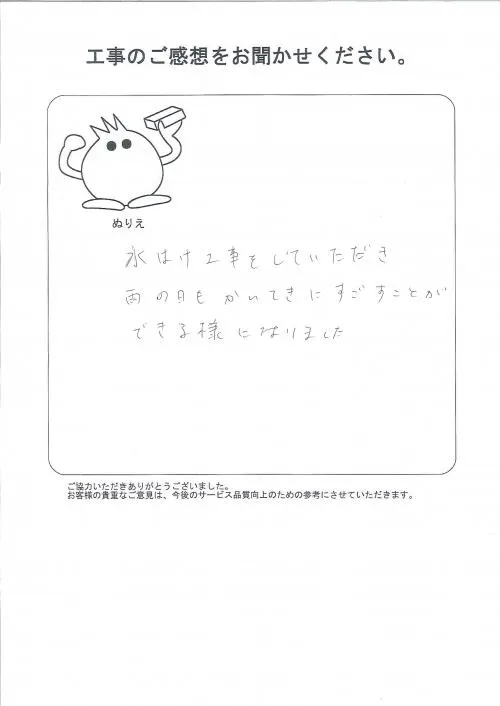 工事のご感想をお聞かせください。
ぬりえ
水はけ工事をしていただき
雨の日もかいてきにすごすことが
できる様になりました
ご協力いただきありがとうございました。
お客様の貴重なご意見は、今後のサービス品質向上のための参考にさせていただきます。